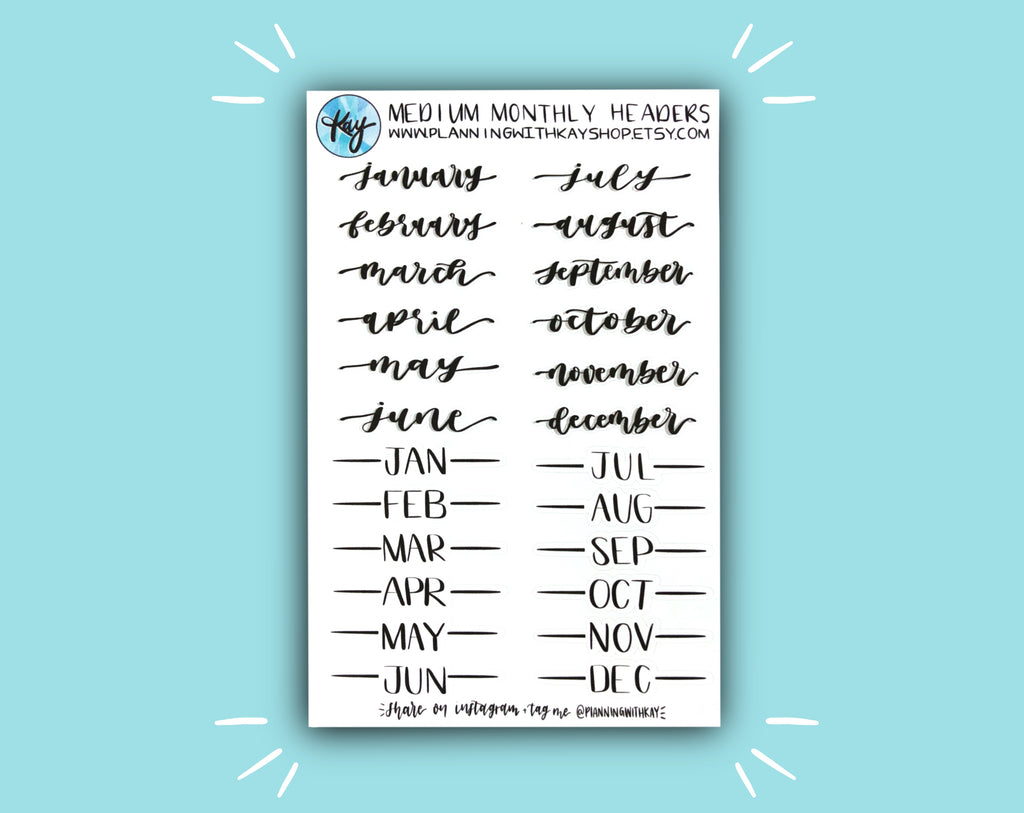 Kay
MEDIUM MONTHLY HEADERS
WWW.PLANNINGWITHKAYSHOP.ETSY.COM
january
february
march
april
may
june
JAN
FEB
MAR
APR
MAY
JUN
july
august
september
october
november
december
JUL
AUG
SEP
OCT
NOV
DEC
share on instagram + tag me @PLANNINGWITHKAY